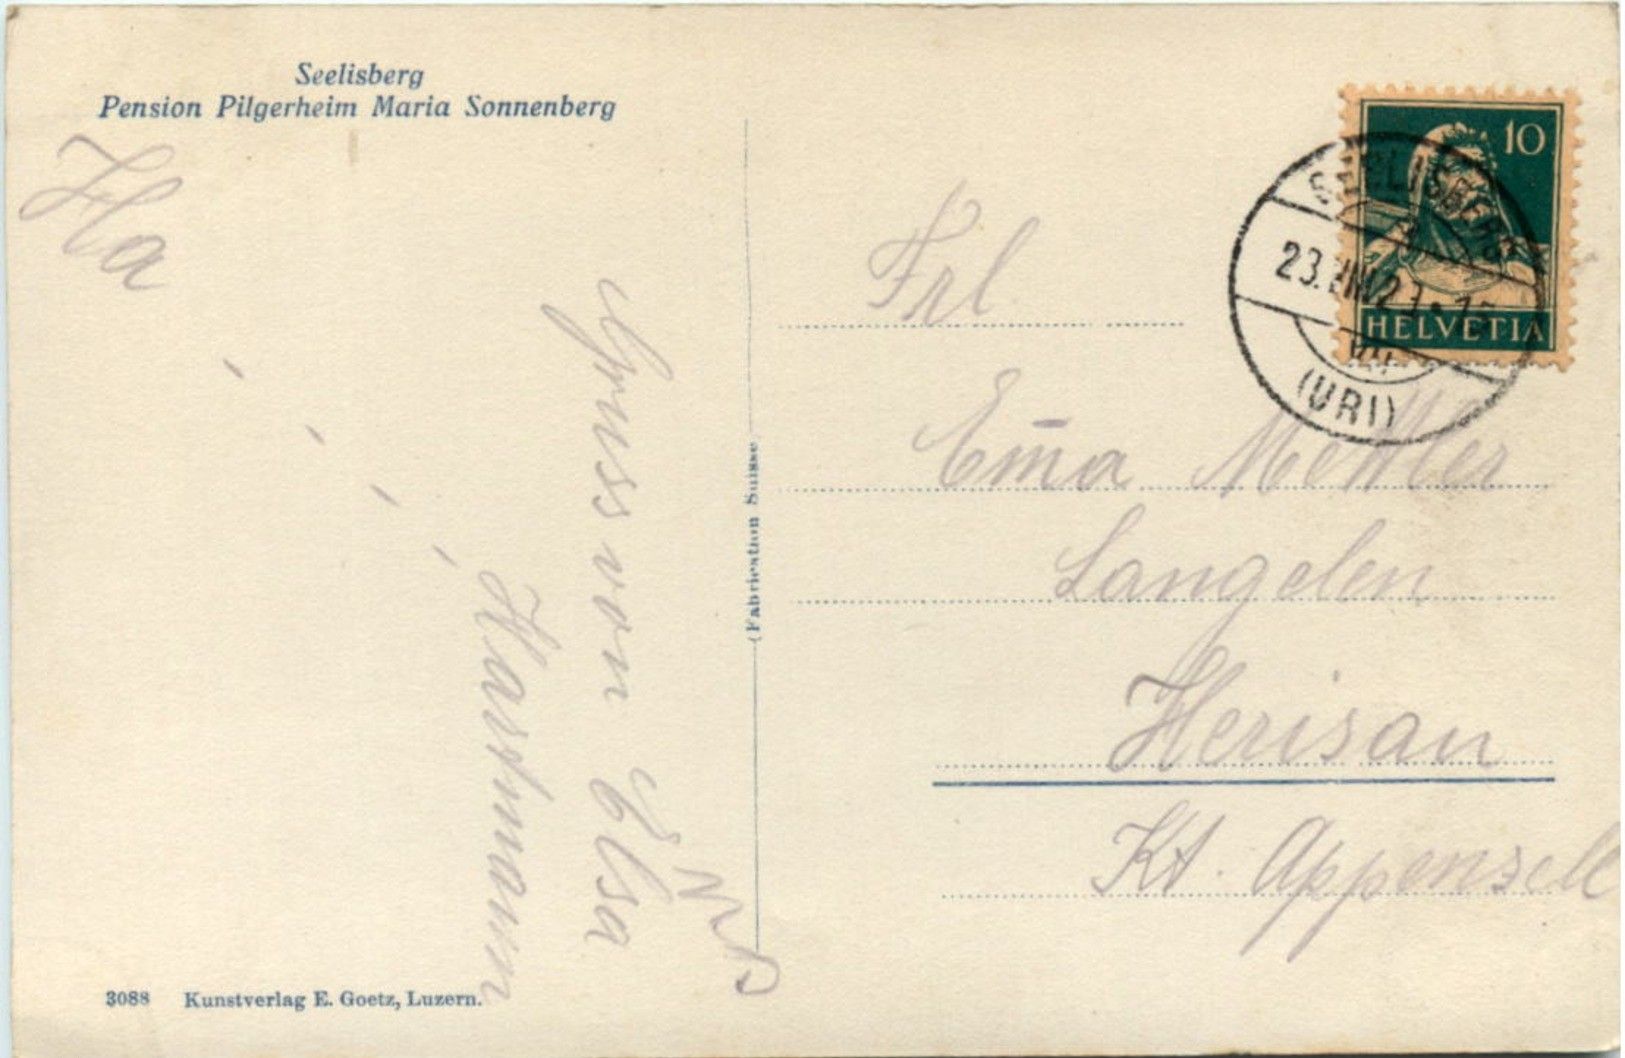 Seelisberg
Pension Pilgerheim Maria Sonnenberg
Ha
Gruss von Elsa
Hartmann
(Fabrication Suisse
3088 Kunstverlag E. Goetz, Luzern.
10
HELVETIA
SEELISBERG
23.VIII.
(URI)
Frl
Em̄a Mettler
Langelen
Herisau
Kt. Appenzell